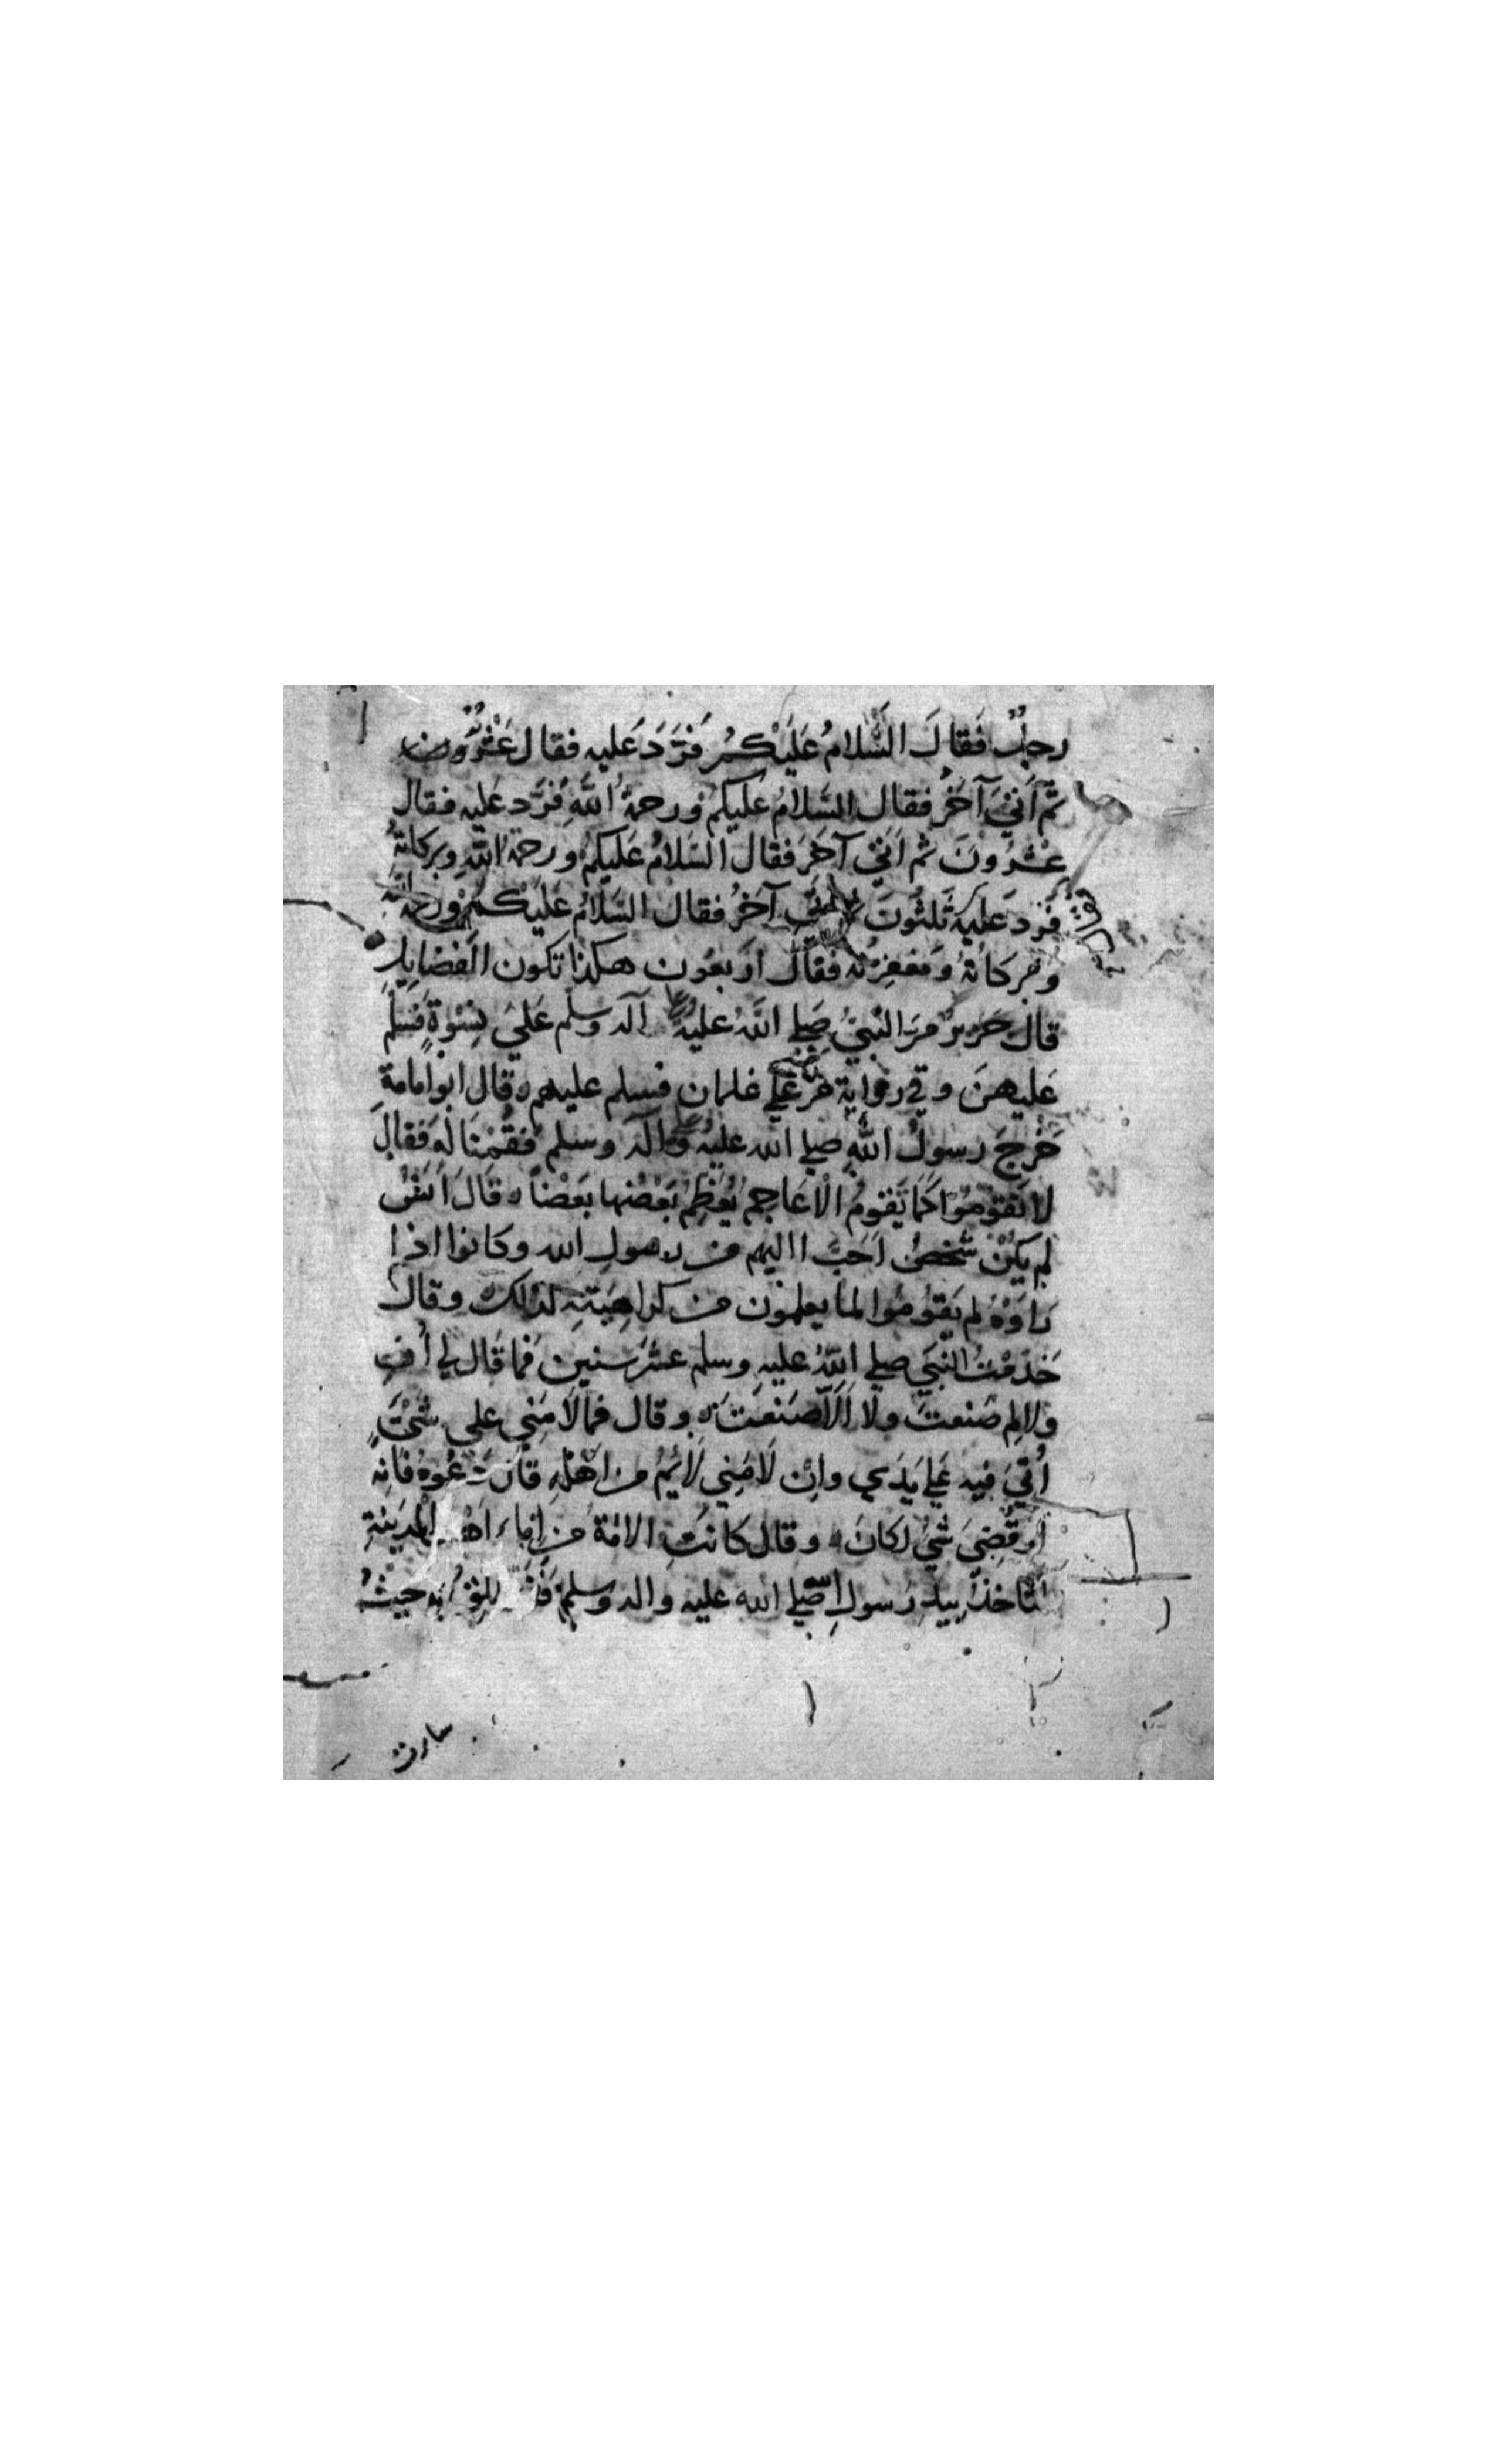 رجلٌ فَقالَ السَّلامُ عَلَيْكُمْ فَرَدَّ عَليه فقال عَشْرٌ
ثم أتى آخَرُ فقال السَّلامُ عَليكم ورحمةُ اللهِ فَرَدَّ عليه فقال
عشرُونَ ثم اتى آخَر فقال السَّلامُ عَليكم ورحمة اللهِ وبركاتُهُ
فَرد عَليه ثَلثُونَ آخَرُ فقال السَّلامُ عَليْكم ورحمة الله
وبركاتهُ ومغفِرتُه فقال اربعُون هكذا تكون الفَضايِل
قال جرير مرَّ النَّبيُّ صَلى اللهُ عليه وآله وسلم عَلى نِسْوَةٍ فَسلَّم
عَليهنَ وفي رواية مَرَّ عَلى غلمان فسلم عليهم وقال ابو امامة
خَرَجَ رسولُ اللهِ صلى الله عليه وآله وسلم فقُمْنَا له فقال
لا تَقُومُوا كما تَقومُ الأعاجم يُعَظِّمُ بَعْضُها بَعْضاً وقَالَ أنسٌ
لم يكنْ شخصٌ اَحَبَّ اليهم من رسول الله وكانوا اذا
رَاوْهُ لم يَقومُوا لما يعلمون من كراهيته لذلك وقال
خَدَمْتُ النَّبيَ صلى اللهُ عليه وسلم عشرَ سنين فما قَال لي أُفٍ
ولا لِم صَنعتَ ولا اَلاَّ صَنَعتَ وقال فما لاَمَني على شَيْءٍ
اُتيَ فيه عَلى يَدَي وإن لاَمَنِي لاَئِمٌ من اَهْلِهِ قال دَعُوهُ فانه
لو قُضِيَ شَيْ لكانَ وقال كانَتِ الامَةُ من إِماءِ اَهْل المدينةِ
لتاخذ بيد رسول الله صلى الله عليه واله وسلم به حيثُ